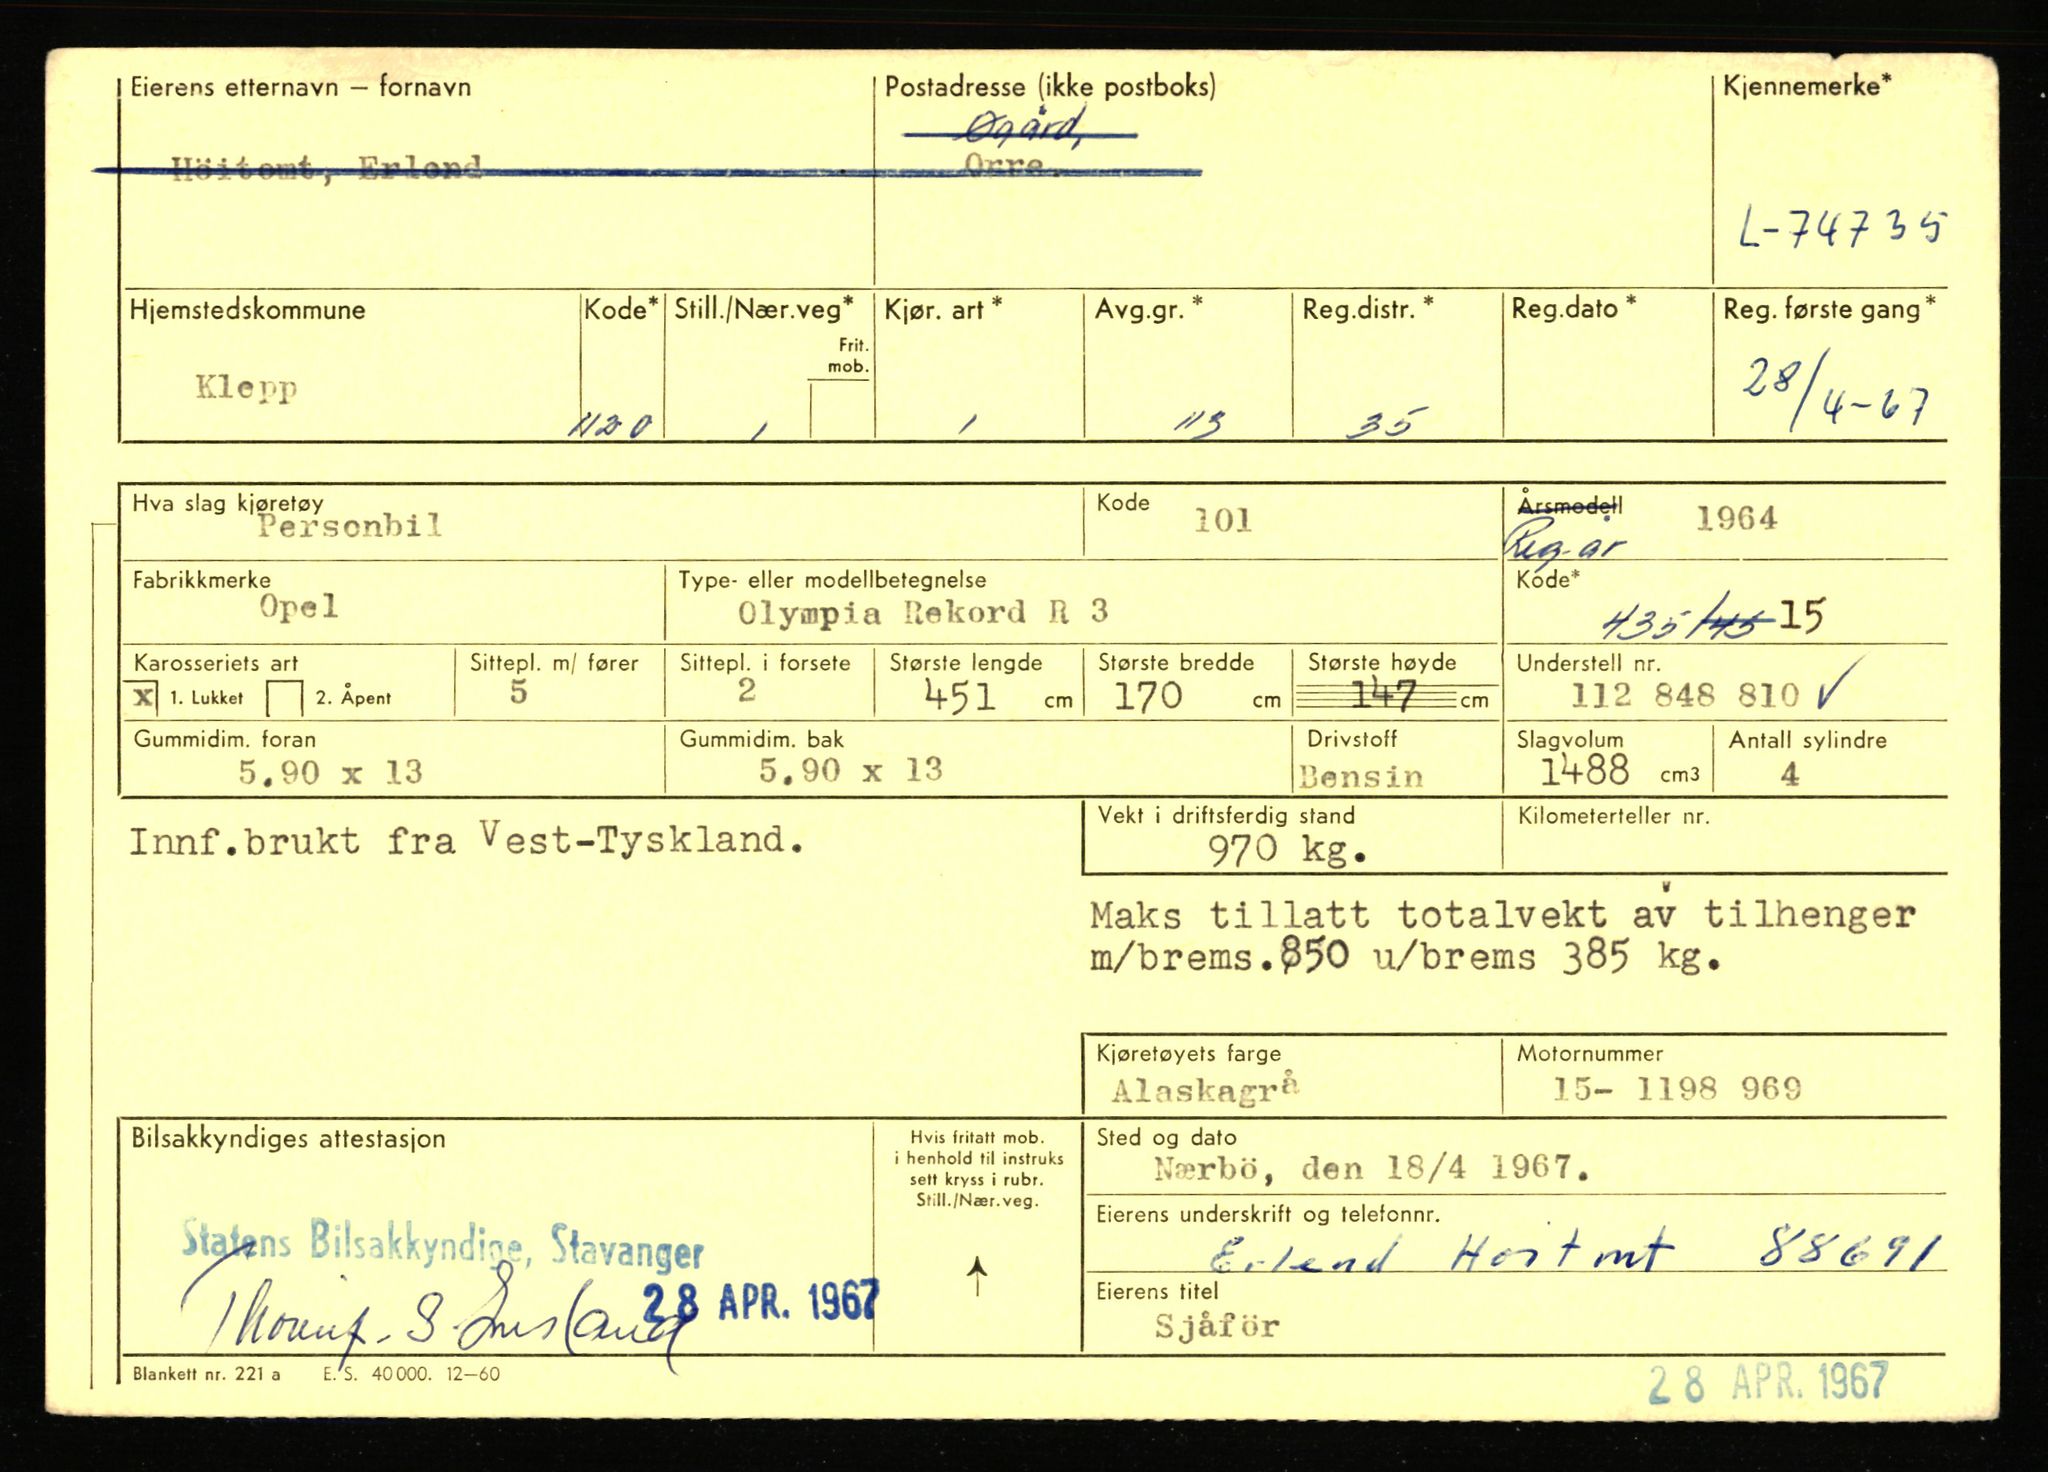 Eierens etternavn – fornavn Postadresse (ikke postboks) Kjennemerke*
Øgård,
Höitomt, Erlend Orre.
L-74735
Hjemstedskommune Kode* Still./Nær.veg* Kjør. art * Avg.gr. * Reg.distr. * Reg.dato * Reg. første gang*
Frit.
mob.
Klepp 1120 1 1 113 35 28/4-67
Hva slag kjøretøy Kode Årsmodell
Personbil 101 1964
Reg.år
Fabrikkmerke Type- eller modellbetegnelse Kode*
Opel Olympia Rekord R 3 435/45 15
Karosseriets art Sittepl. m/ fører Sittepl. i forsete Største lengde Største bredde Største høyde Understell nr.
x 1. Lukket 2. Åpent 5 2 451 cm 170 cm 147 cm 112 848 810 ✓
Gummidim. foran Gummidim. bak Drivstoff Slagvolum Antall sylindre
5.90 x 13 5.90 x 13 Bensin 1488 cm3 4
Vekt i driftsferdig stand Kilometerteller nr.
Innf.brukt fra Vest-Tyskland.
970 kg.
Maks tillatt totalvekt av tilhenger
m/brems.850 u/brems 385 kg.
Kjøretøyets farge Motornummer
Alaskagrå 15- 1198 969
Bilsakkyndiges attestasjon
Hvis fritatt mob.
i henhold til instruks
sett kryss i rubr.
Still./Nær.veg.
Sted og dato
Nærbö, den 18/4 1967.
Eierens underskrift og telefonnr.
Statens Bilsakkyndige, Stavanger
Erlend Höitomt 88691
28 APR. 1967
Eierens titel
Sjåför
Blankett nr. 221 a E. S. 40 000. 12–60
28 APR. 1967